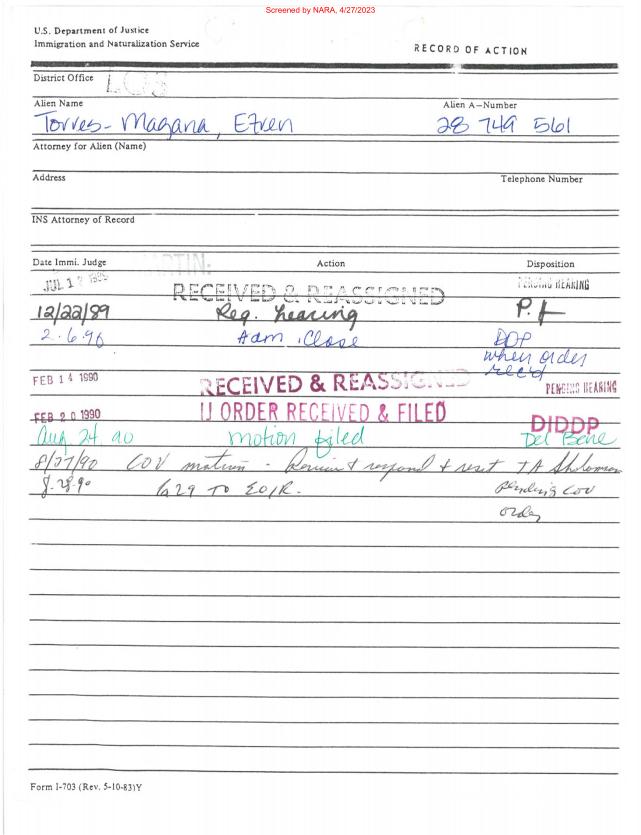 Screened by NARA, 4/27/2023
U.S. Department of Justice
Immigration and Naturalization Service
RECORD OF ACTION
District Office LOS
Alien Name Alien A-Number
Torres-Magana, Efren 28 749 561
Attorney for Alien (Name)
Address Telephone Number
INS Attorney of Record
Date Immi. Judge Action Disposition
JUL 1 RECEIVED & REASSIGNED PENDING HEARING
12/22/89 Reg. hearing P.H
2.6.90 Adm. Close DDP
when order
rec'd
FEB 14 1990 RECEIVED & REASSIGNED PENDING HEARING
FEB 20 1990 IJ ORDER RECEIVED & FILED DIDDP
Aug 24 90 motion filed Del Bene
8/27/90 COV motion - respond + TA
8.28.90 to EOIR. Pending COV
order
Form I-703 (Rev. 5-10-83)Y